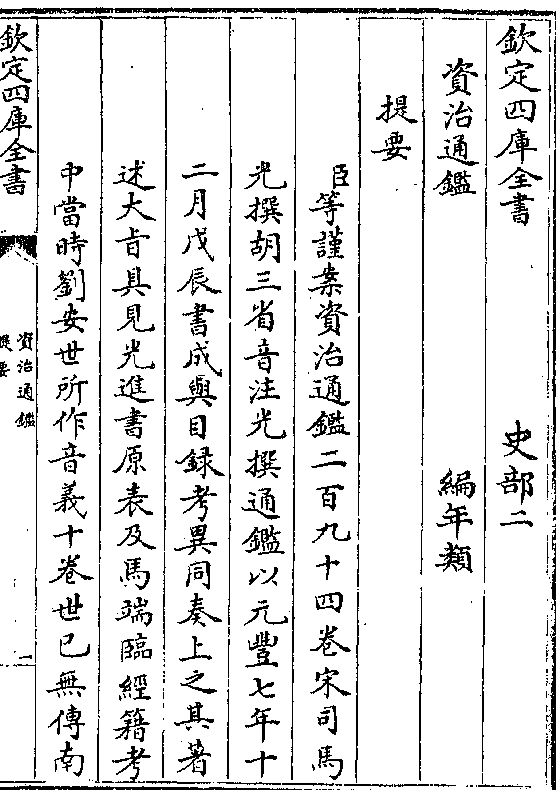 欽定四庫全書 史部二
資治通鑑 編年類
提要
臣等謹案資治通鑑二百九十四卷宋司馬
光撰胡三省音注光撰通鑑以元豐七年十
二月戊辰書成與目録考異同奏上之其著
述大㫖具見光進書原表及馬端臨經籍考
中當時劉安世所作音義十卷世已無傳南
欽定四庫全書
資治通鑑
提要
一